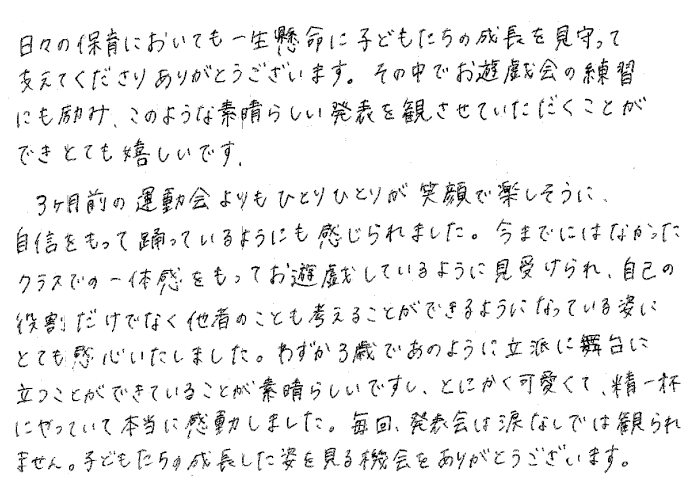 日々の保育においても一生懸命に子どもたちの成長を見守って
支えてくださりありがとうございます。その中でお遊戯会の練習
にも励み、このような素晴らしい発表を観させていただくことが
できとても嬉しいです。
3ヶ月前の運動会よりもひとりひとりが笑顔で楽しそうに、
自信をもって踊っているようにも感じられました。今までにはなかった
クラスでの一体感をもってお遊戯しているように見受けられ、自己の
役割だけでなく他者のことも考えることができるようになっている姿に
とても感心いたしました。わずか3歳であのように立派に舞台に
立つことができていることが素晴らしいですし、とにかく可愛くて、精一杯
にやっていて本当に感動しました。毎回、発表会は涙なしでは観られ
ません。子どもたちの成長した姿を見る機会をありがとうございます。